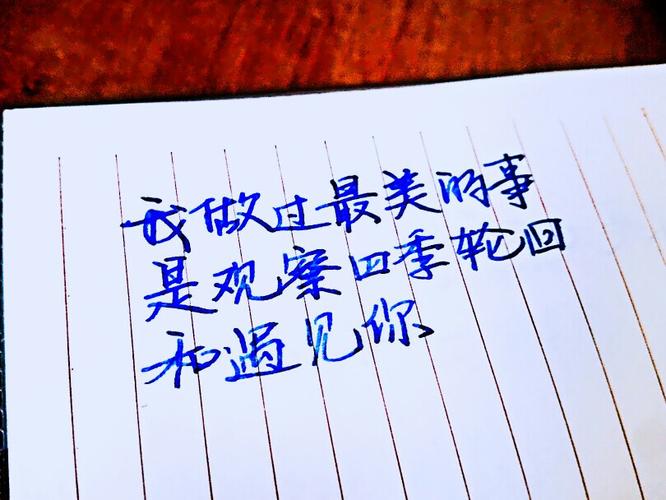 我做过最美的事
是观察四季轮回
和遇见你